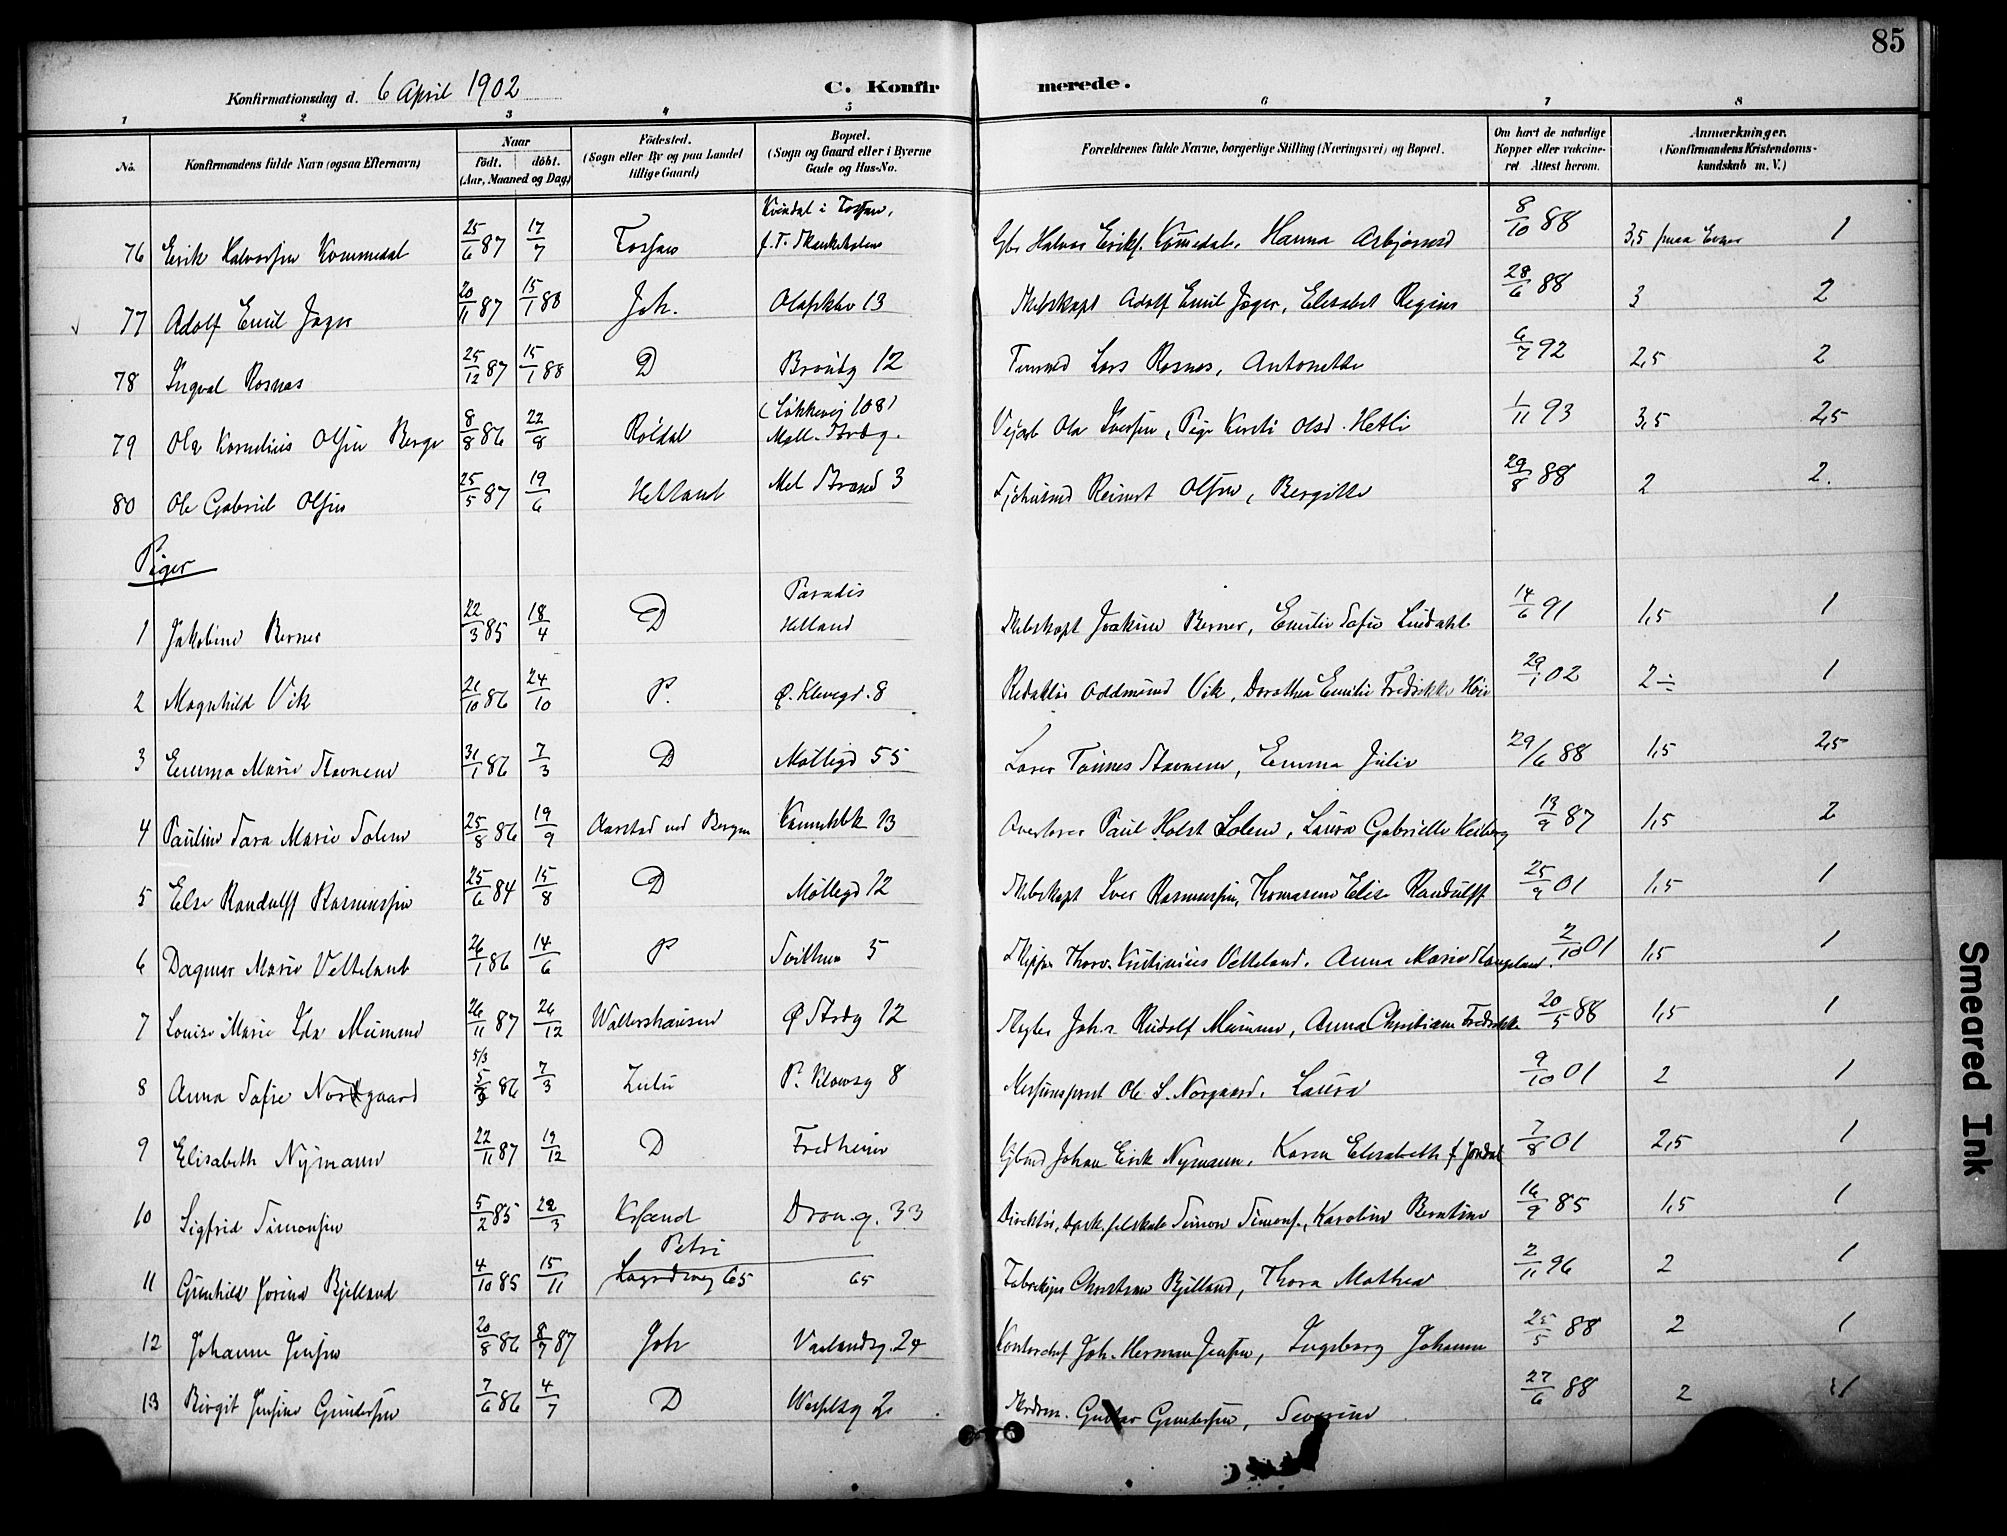 85
Konfirmationsdag d. 6 April 1902 C. Konfirmerede.
1 2 3 4 5 6 7 8
No. Konfirmandens fulde Navn (ogsaa Efternavn) Naar født. døbt. (Aar, Maaned og Dag) Fødested. (Sogn eller By og paa Landet tillige Gaard) Bopæl. (Sogn og Gaard eller i Byerne Gade og Hus-No. Forældrenes fulde Navne, borgerlige Stilling (Næringsvei) og Bopæl. Om havt de naturlige Kopper eller vakcineret Attest herom. Anmærkninger. (Konfirmandens Kristendomskundskab m. V.)
76 Erik Halvorsen Kommedal 25/6 87 17/7 Fossan Halvor Eriks. Hanna Asbjørnsd 8/10 88 3,5 1
77 Adolf Emil Jæger 20/11 87 15/1 88 Joh. Olafsklev 13 Skibskapt Adolf Emil Jæger, Elisabet Regine 28/6 88 3 2
78 Ingval Rosnes 25/12 87 15/1 88 D 12 Lars Rosnes, Antonette 6/7 92 2,5 2
79 Ole Kornelius Olsen Berge 8/8 86 22/8 Røldal (Løkkevej 108) Ola Iversen, Pige Kirsti Olsd. Hetli 1/11 93 3,5 2,5
80 Ole Gabriel Olsen 25/5 87 19/6 Hetland Mel Strand 3 Reinert Olsen, Bergitte 29/8 88 2 2.
Piger
1 Jakobine Berner 22/3 85 18/4 D Paradis Hetland Skibskapt Joakim Berner, Emilie Sofie Lindahl 14/6 91 1,5 1
2 Magnhild Vik 21/10 86 24/10 P. Ø. Klevegd. 8 Redaktør Oddmund Vik, Dorothea Emilie Fredrikke 29/1 02 2÷ 1
3 Emma Marie Stavnem 31/1 86 7/3 D Møllegd 55 Lærer Tønnes Stavnem, Emma Julie 29/6 88 1,5 2,5
4 Pauline Sara Marie Solem 25/8 86 19/9 Aarstad ved Bergen 13 Overlærer Paul Holst Solem, Laura Gabrielle Heiberg 13/9 87 1,5 2
5 Else Randulff Rasmussen 25/6 84 15/8 D Møllegd 12 Skibskapt Iver Rasmussen, Thomasine Elise Randulff 25/9 01 1,5 1
6 Dagmar Marie Vetteland 26/1 86 14/6 P Svithun 5 Skipper Thorv. Kristinius Vetteland. Anna Marie Stangeland. 2/10 01 1,5 1
7 Louise Marie Ida Mumme 26/11 87 26/12 Waltershausen Ø Strdg 12 Megler Joh. R. Rudolf Mumme, Anna Christiane Fredrikke 20/5 88 1,5 1
8 Anna Sofie Norgaard 5/3 86 7/3 Zulu P. Klowsg 8 Missionsprest Ole S. Norgaard. Laura 9/10 01 2 1
9 Elisabeth Nymann 22/11 87 19/12 D Fredheim Johan Eirik Nymann. Karen Elisabeth f. Jondal 7/8 01 2,5 1
10 Sigfrid Simonsen 5/2 85 22/3 Krsand Dron.g. 33 Direktør, Simon Simons., Karoline Berntine 16/9 85 1,5 1
11 Gunhild Josine Bjelland 4/10 85 15/11 Petri Lagårdsveg 65 65 Christian Bjelland, Thora Mathea 2/11 96 2 1
12 Johanne Jensen 20/8 86 8/7 87 Joh Vaalandsg. 24 Kontorchef Joh. Herman Jensen, Ingeborg Johanne 25/5 88 2 1
13 Birgit Jensine Gundersen 7/6 86 4/7 D Wesselsg 2 Gustav Gundersen, Severine 27/6 88 2 1
Smeared Ink